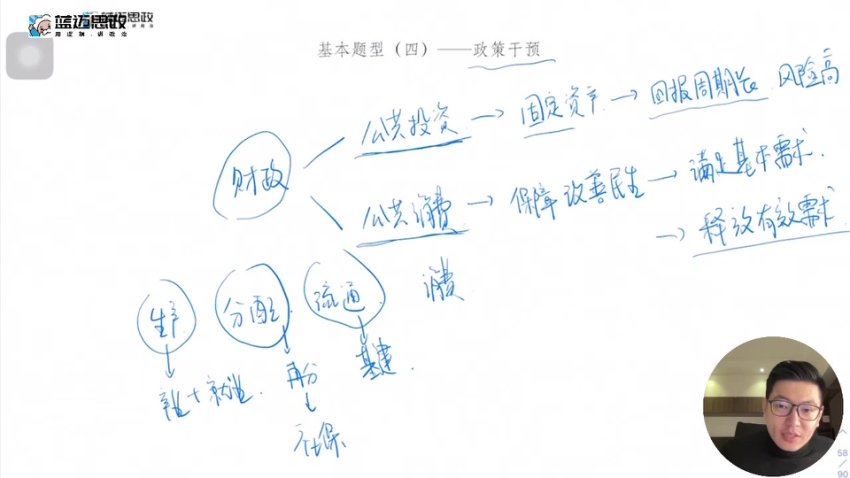 蓝迈思政
基本题型（四）——政策干预
公共投资 → 固定资产 → 回报周期长 风险高
财政
公共消费 → 保障改善民生 → 满足基本需求
→ 释放有效需求
生产 分配 流通 消费
再分 基建
社保
58
/
90